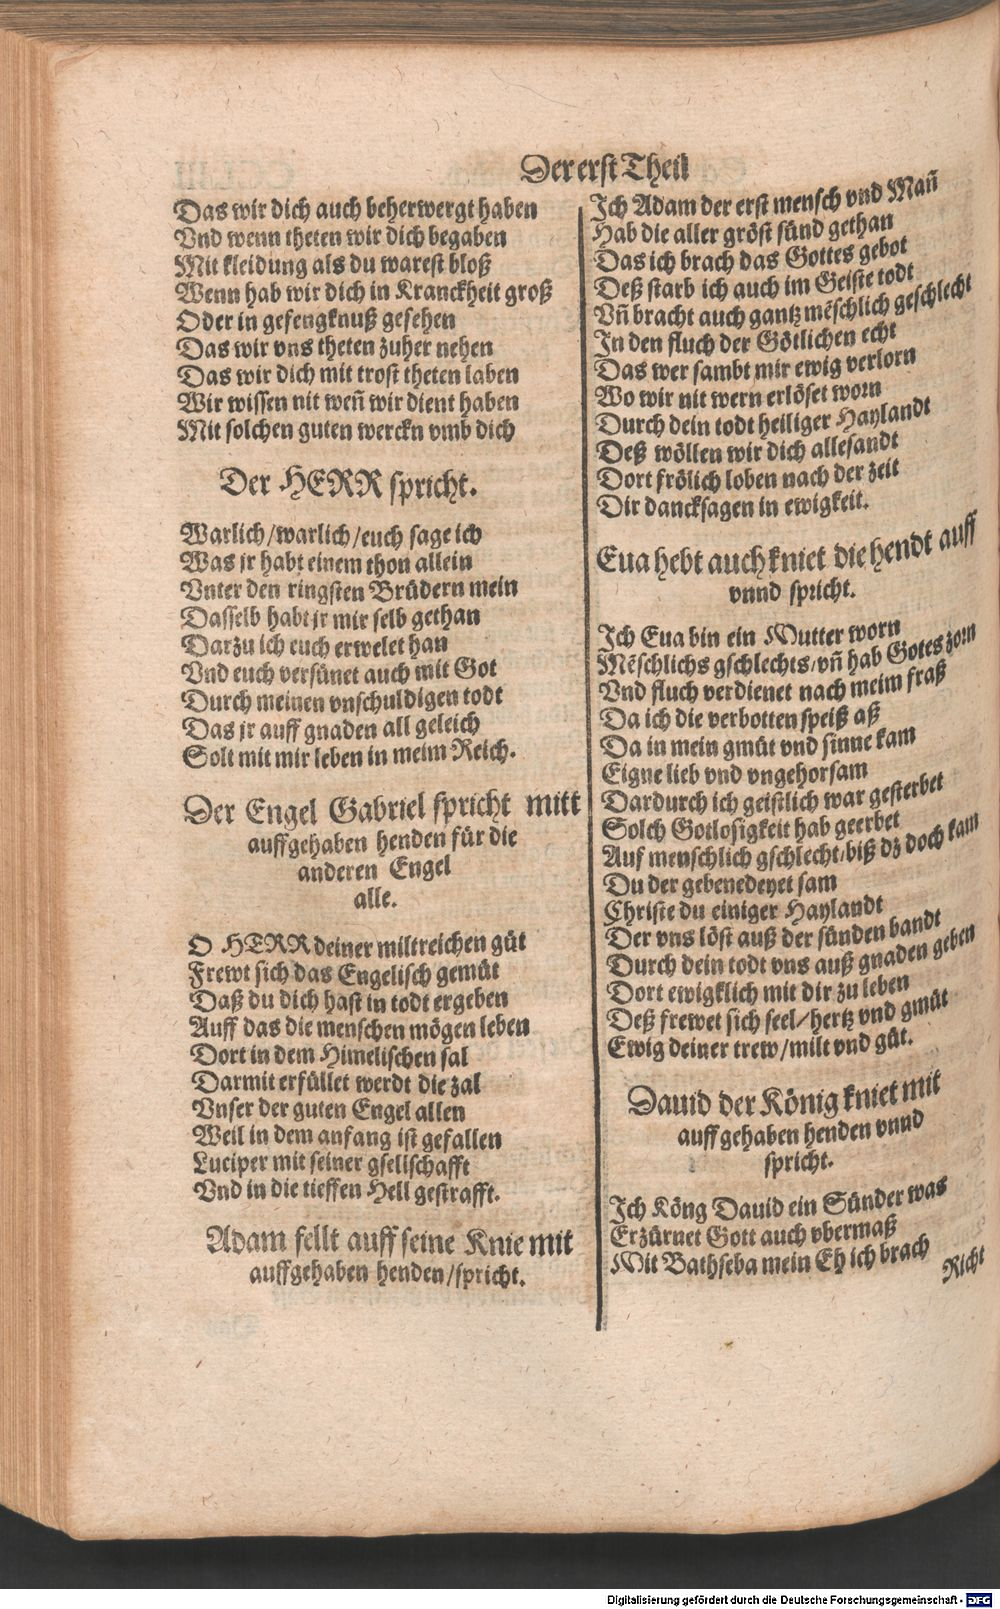 Der erst Theil
Das wir dich auch beherwergt haben
Vnd wenn theten wir dich begaben
Mit kleidung als du warest bloß
Wenn hab wir dich in Kranckheit groß
Oder in gefengknuß gesehen
Das wir vns theten zuher nehen
Das wir dich mit trost theten laben
Wir wissen nit weñ wir dient haben
Mit solchen guten werckn vmb dich
Der HERR spricht.
Warlich/warlich/euch sage ich
Was jr habt einem thon allein
Vnter den ringsten Brüdern mein
Dasselb habt jr mir selb gethan
Darzu ich euch erwelet han
Vnd euch versünet auch mit Got
Durch meinen vnschuldigen todt
Das jr auff gnaden all geleich
Solt mit mir leben in meim Reich.
Der Engel Gabriel spricht mitt
auffgehaben henden für die
anderen Engel
alle.
O HERR deiner miltreichen güt
Frewt sich das Engelisch gemüt
Daß du dich hast in todt ergeben
Auff das die menschen mögen leben
Dort in dem Himelischen sal
Darmit erfüllet werdt die zal
Vnser der guten Engel allen
Weil in dem anfang ist gefallen
Luciper mit seiner gsellschafft
Vnd in die tieffen Hell gestrafft.
Adam fellt auff seine Knie mit
auffgehaben henden/spricht.
Ich Adam der erst mensch vnd Mañ
Hab die aller gröst sünd gethan
Das ich brach das Gottes gebot
Deß starb ich auch im Geiste todt
Vñ bracht auch gantz mẽschlich geschlecht
In den fluch der Götlichen echt
Das wer sambt mir ewig verlorn
Wo wir nit wern erlöset worn
Durch dein todt heiliger Haylandt
Deß wöllen wir dich allesandt
Dort frölich loben nach der zeit
Dir dancksagen in ewigkeit.
Eua hebt auch kniet die hendt auff
vnnd spricht.
Ich Eua bin ein Mutter worn
Mẽschlichs gschlechts/vñ hab Gottes zorn
Vnd fluch verdienet nach meim fraß
Da ich die verbotten speiß aß
Da in mein gmüt vnd sinne kam
Eigne lieb vnd vngehorsam
Dardurch ich geistlich war gesterbet
Solch Gotlosigkeit hab geerbet
Auf menschlich gschlecht/biß dz doch kam
Du der gebenedeyet sam
Christe du einiger Haylandt
Der vns löst auß der sünden bandt
Durch dein todt vns auß gnaden geben
Dort ewigklich mit dir zu leben
Deß frewet sich seel/hertz vnd gmüt
Ewig deiner trew/milt vnd güt.
Dauid der König kniet mit
auffgehaben henden vnnd
spricht.
Ich Köng Dauid ein Sünder was
Erzürnet Gott auch vbermaß
Mit Bathseba mein Eh ich brach
Richt
Digitalisierung gefördert durch die Deutsche Forschungsgemeinschaft - DFG